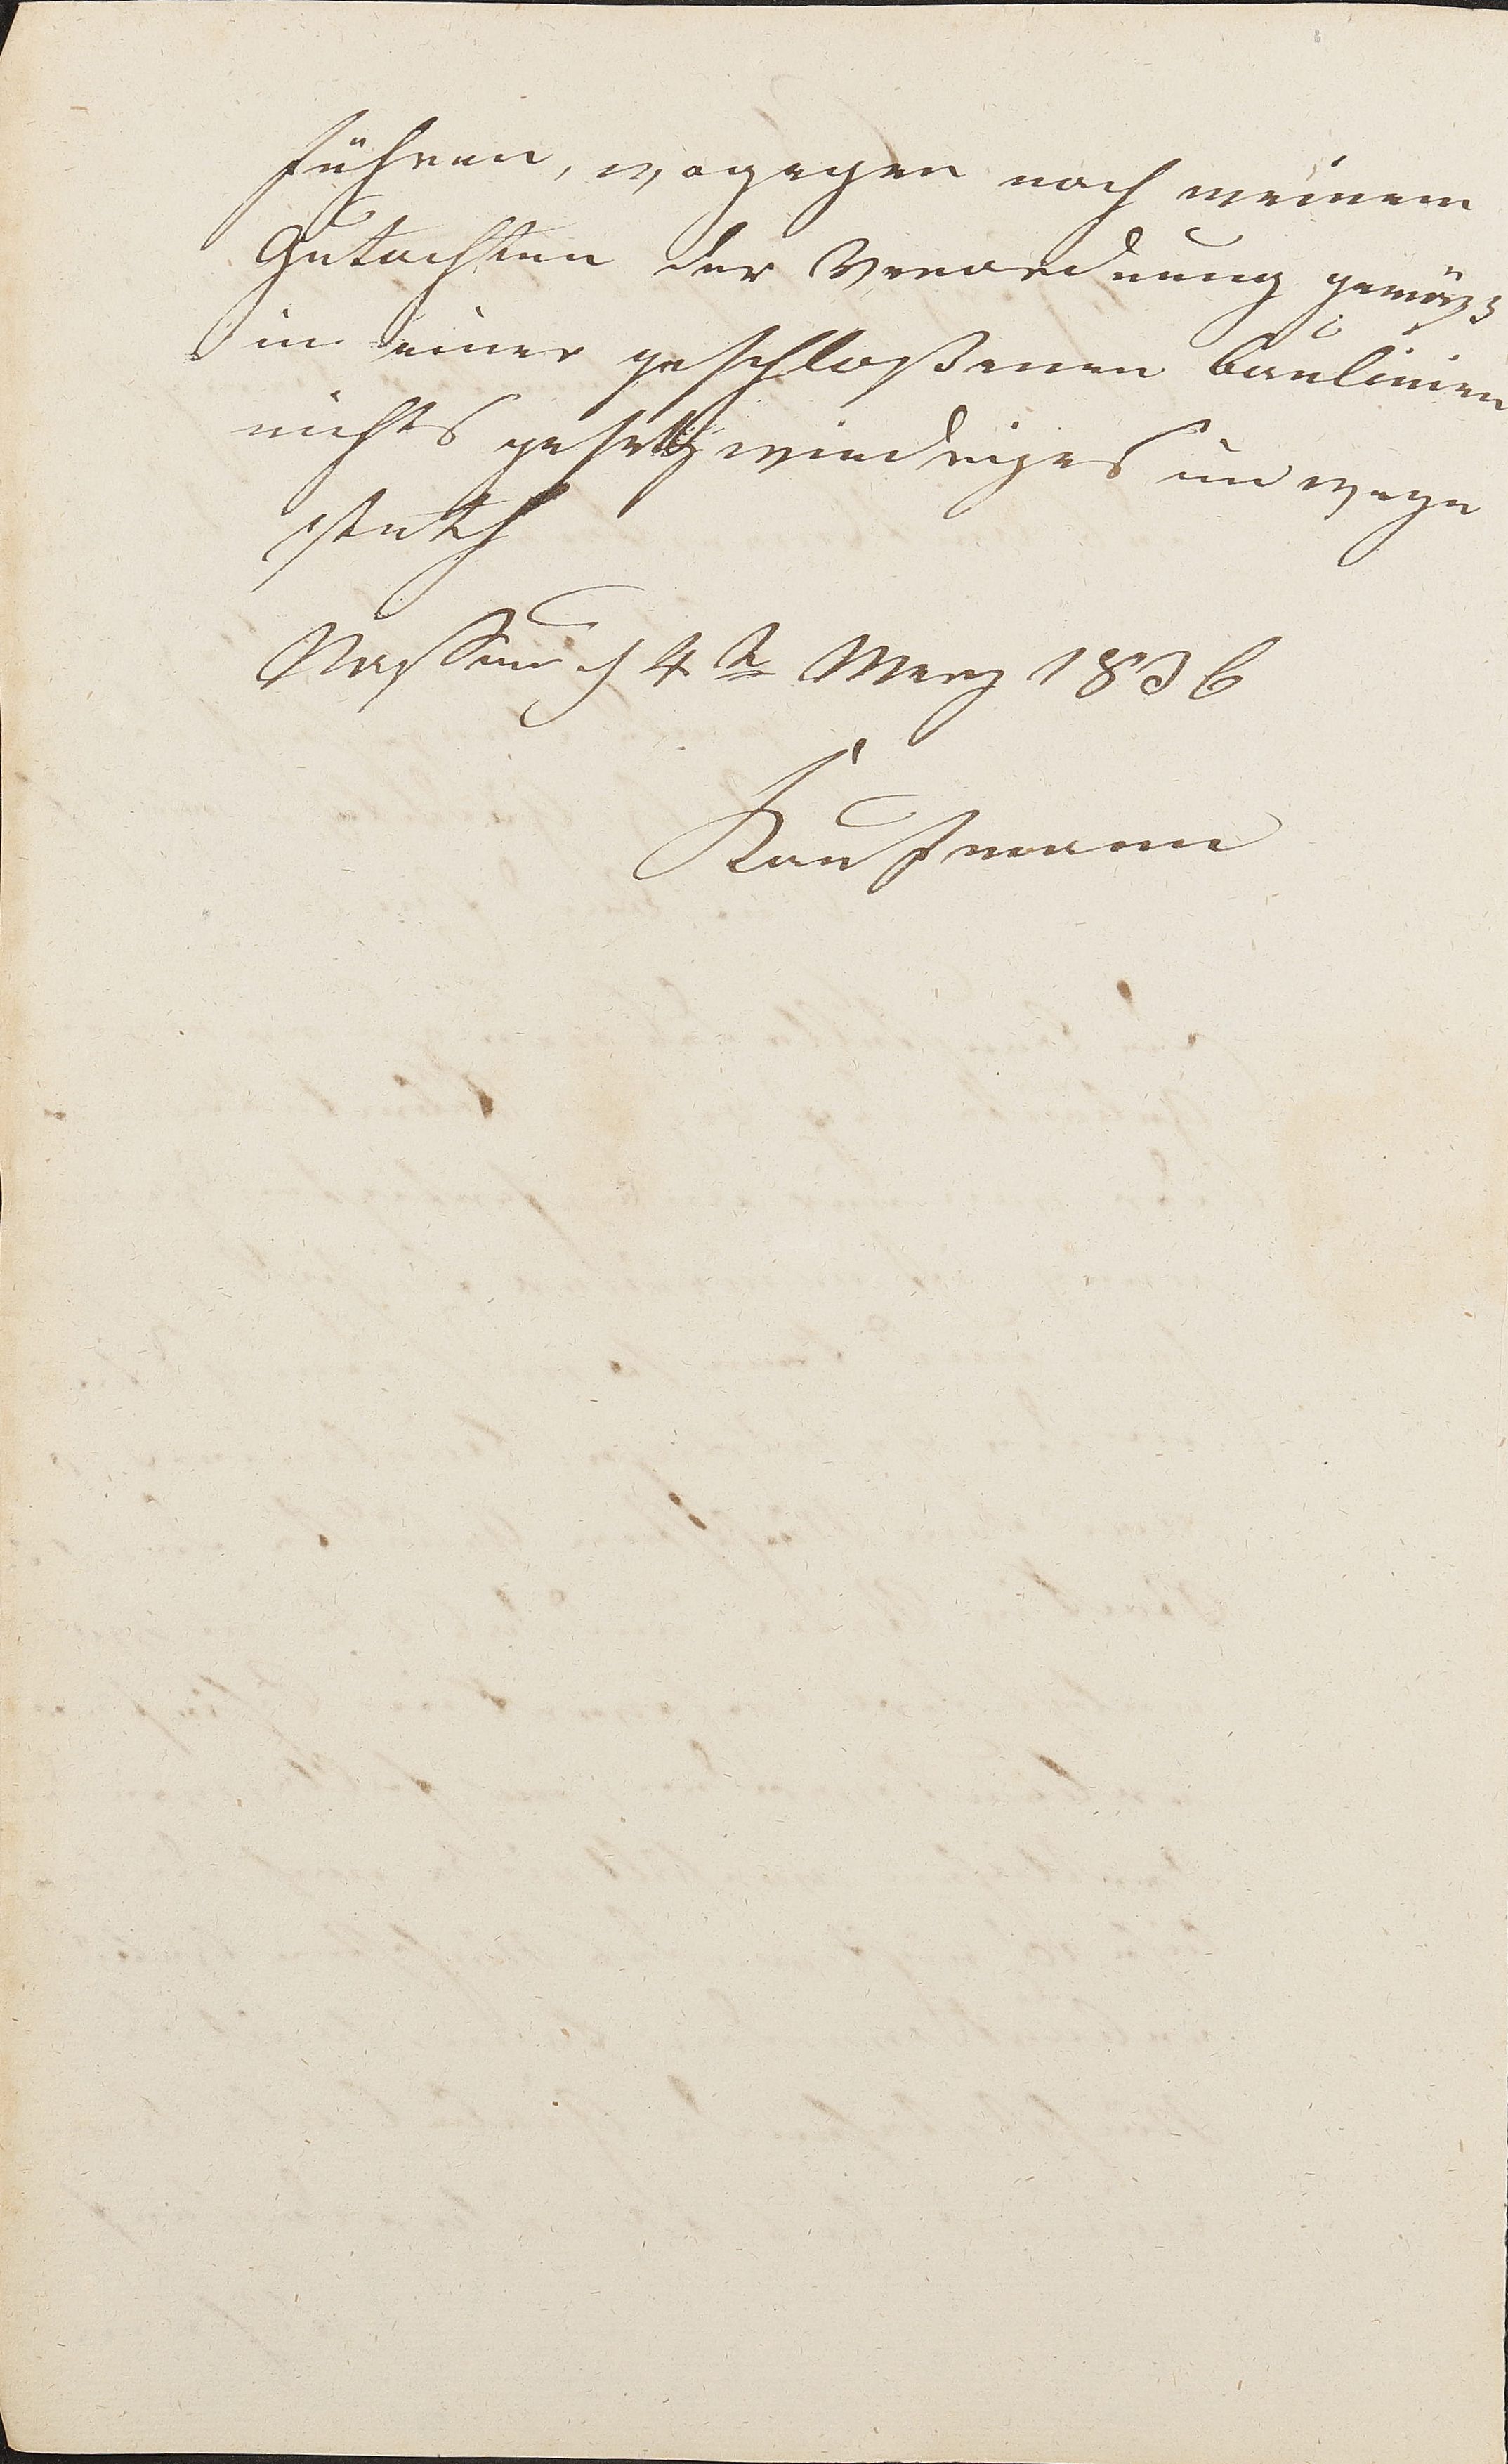 führen, wogegen nach meinem
Gutachten der Verordnung gemäß
in einer geschloßenen baulinien
nichts gesetzwiedriges im wege
steth
Nassau d 4t Merz 1836
Kaufmann